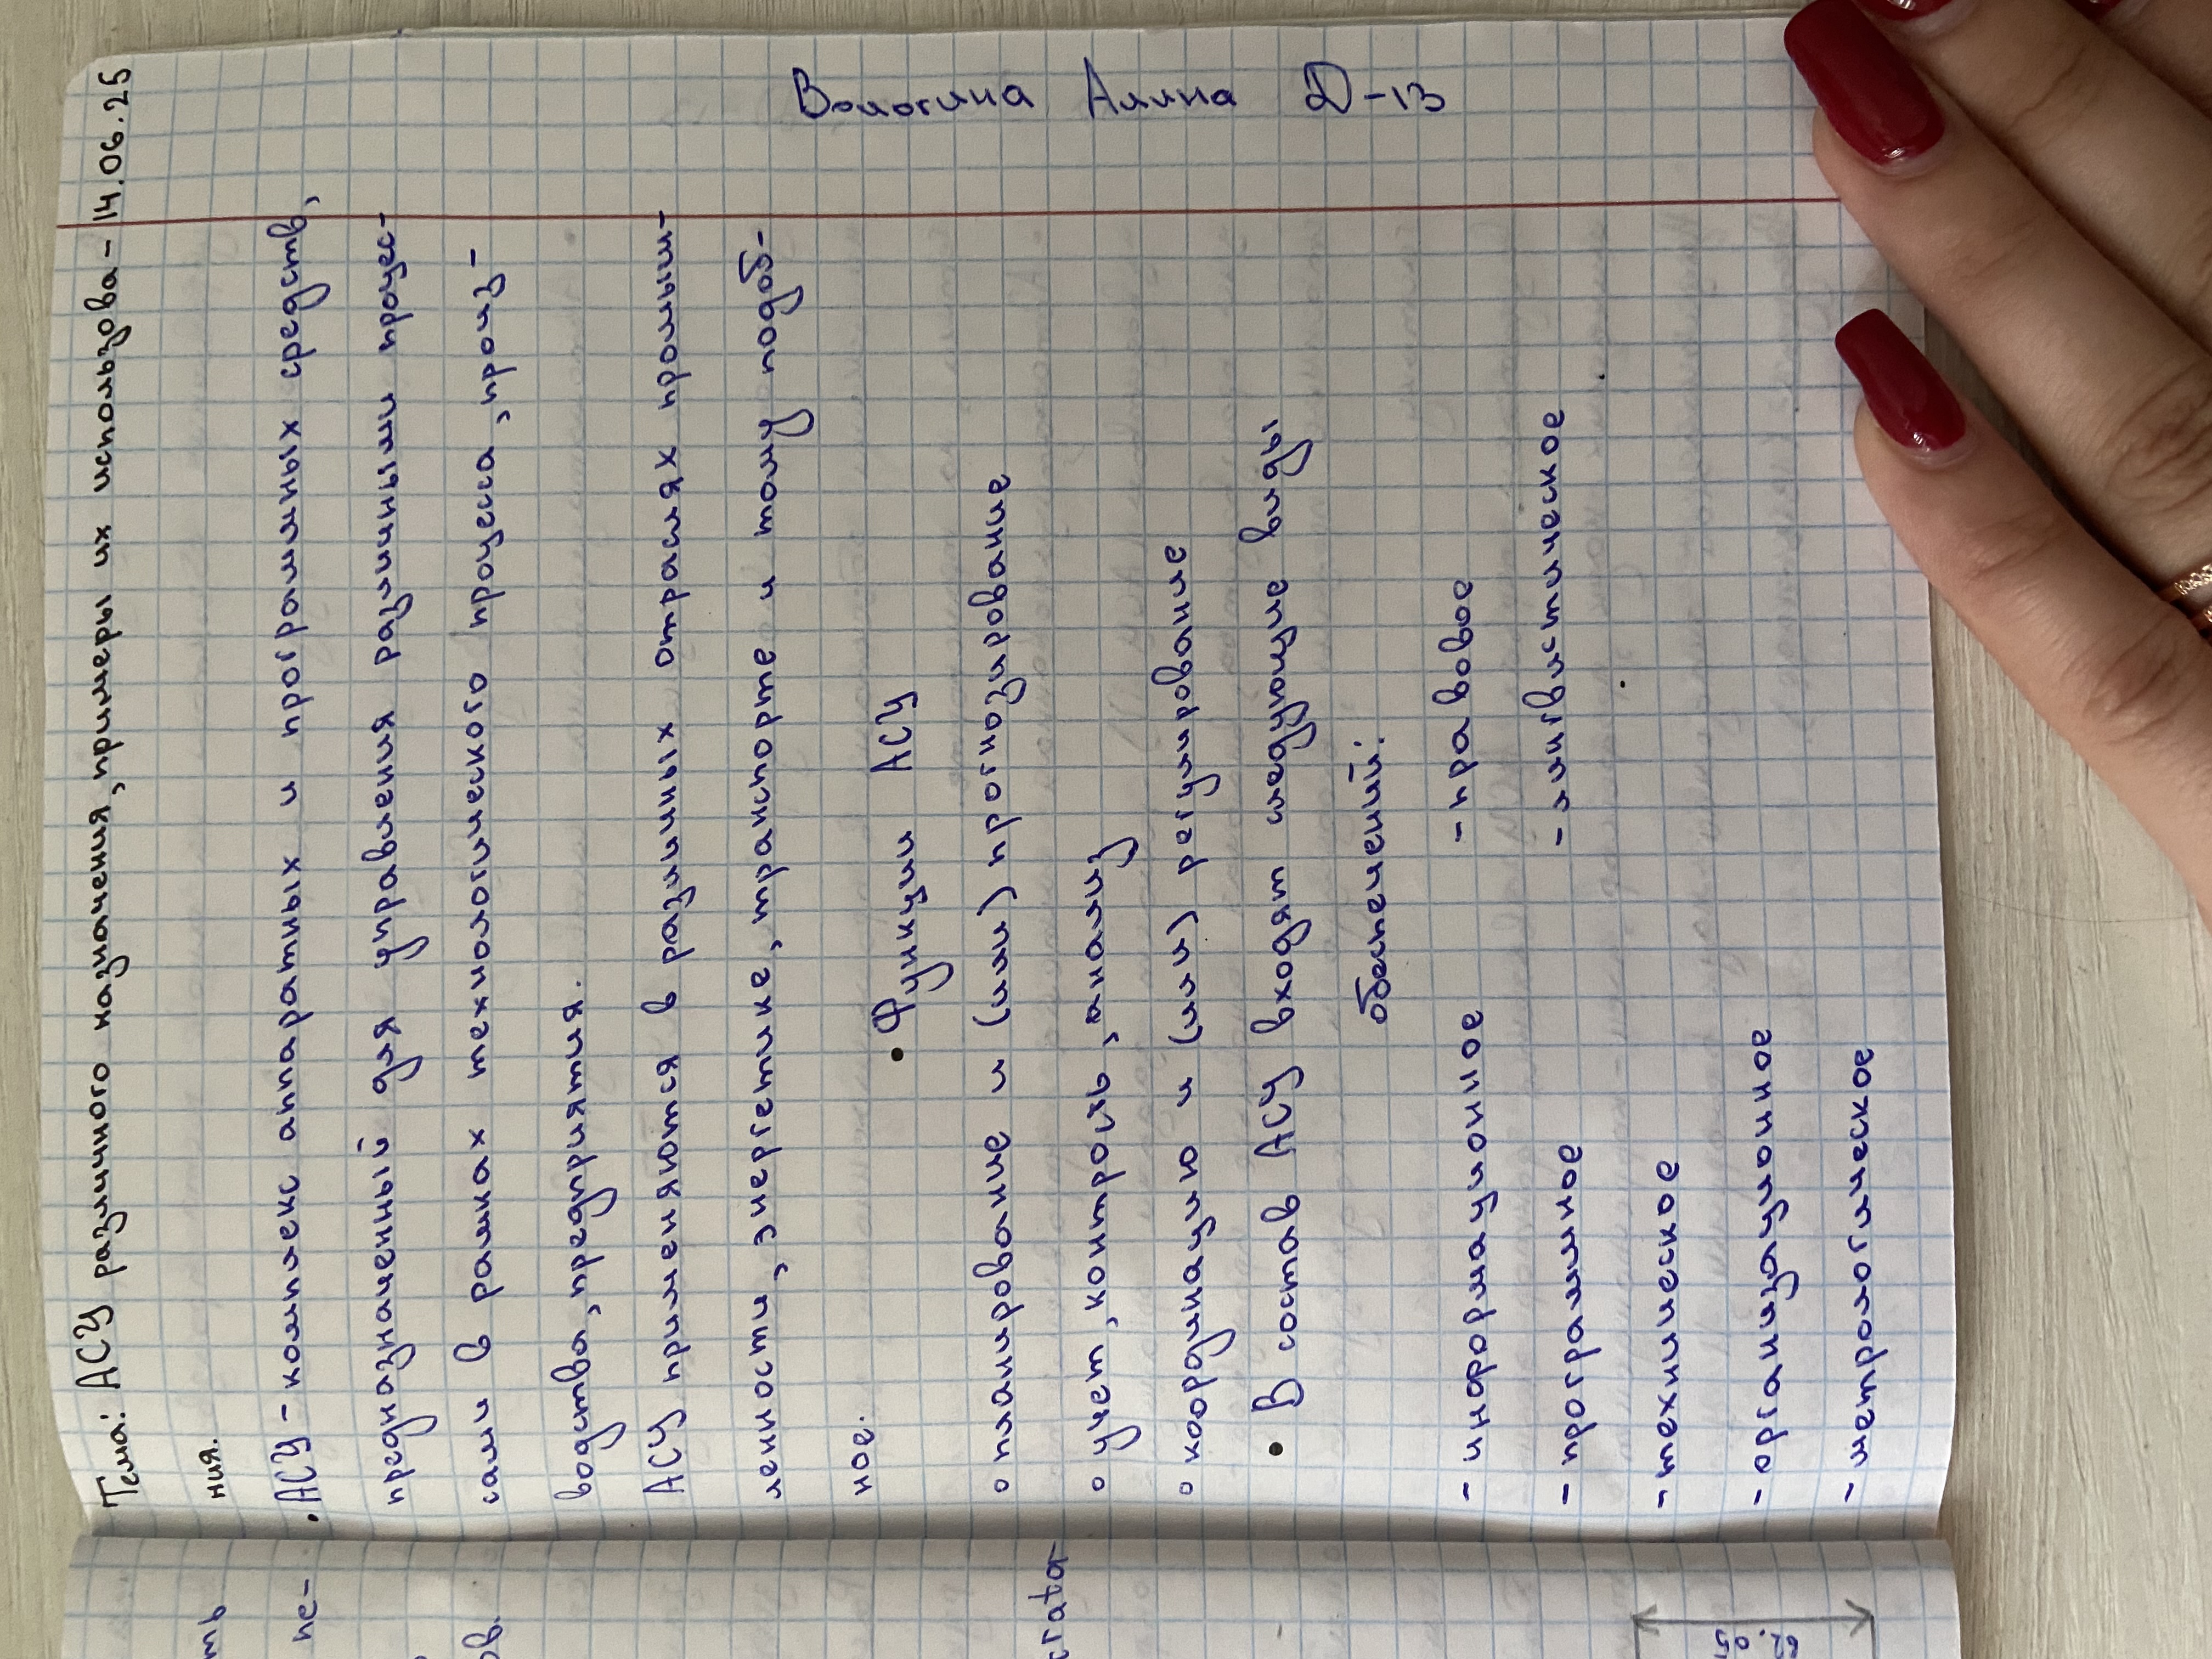 Тема: АСУ различного назначения, примеры их использова- 14.06.25
ния.
• АСУ - комплекс аппаратных и программных средств,
предназначенный для управления различными процес-
сами в рамках технологического процесса, произ-
водства, предприятия.
АСУ применяются в различных отраслях промыш-
ленности, энергетике, транспорте и тому подоб-
ное.
• Функции АСУ
◦ планирование и (или) прогнозирование
◦ учет, контроль, анализ
◦ координацию и (или) регулирование
• В состав АСУ входят следующие виды
обеспечений:
- информационное - правовое
- программное - лингвистическое
- техническое
- организационное
- метрологическое
Вологина Алина Д-13
ть
пе-
ов.